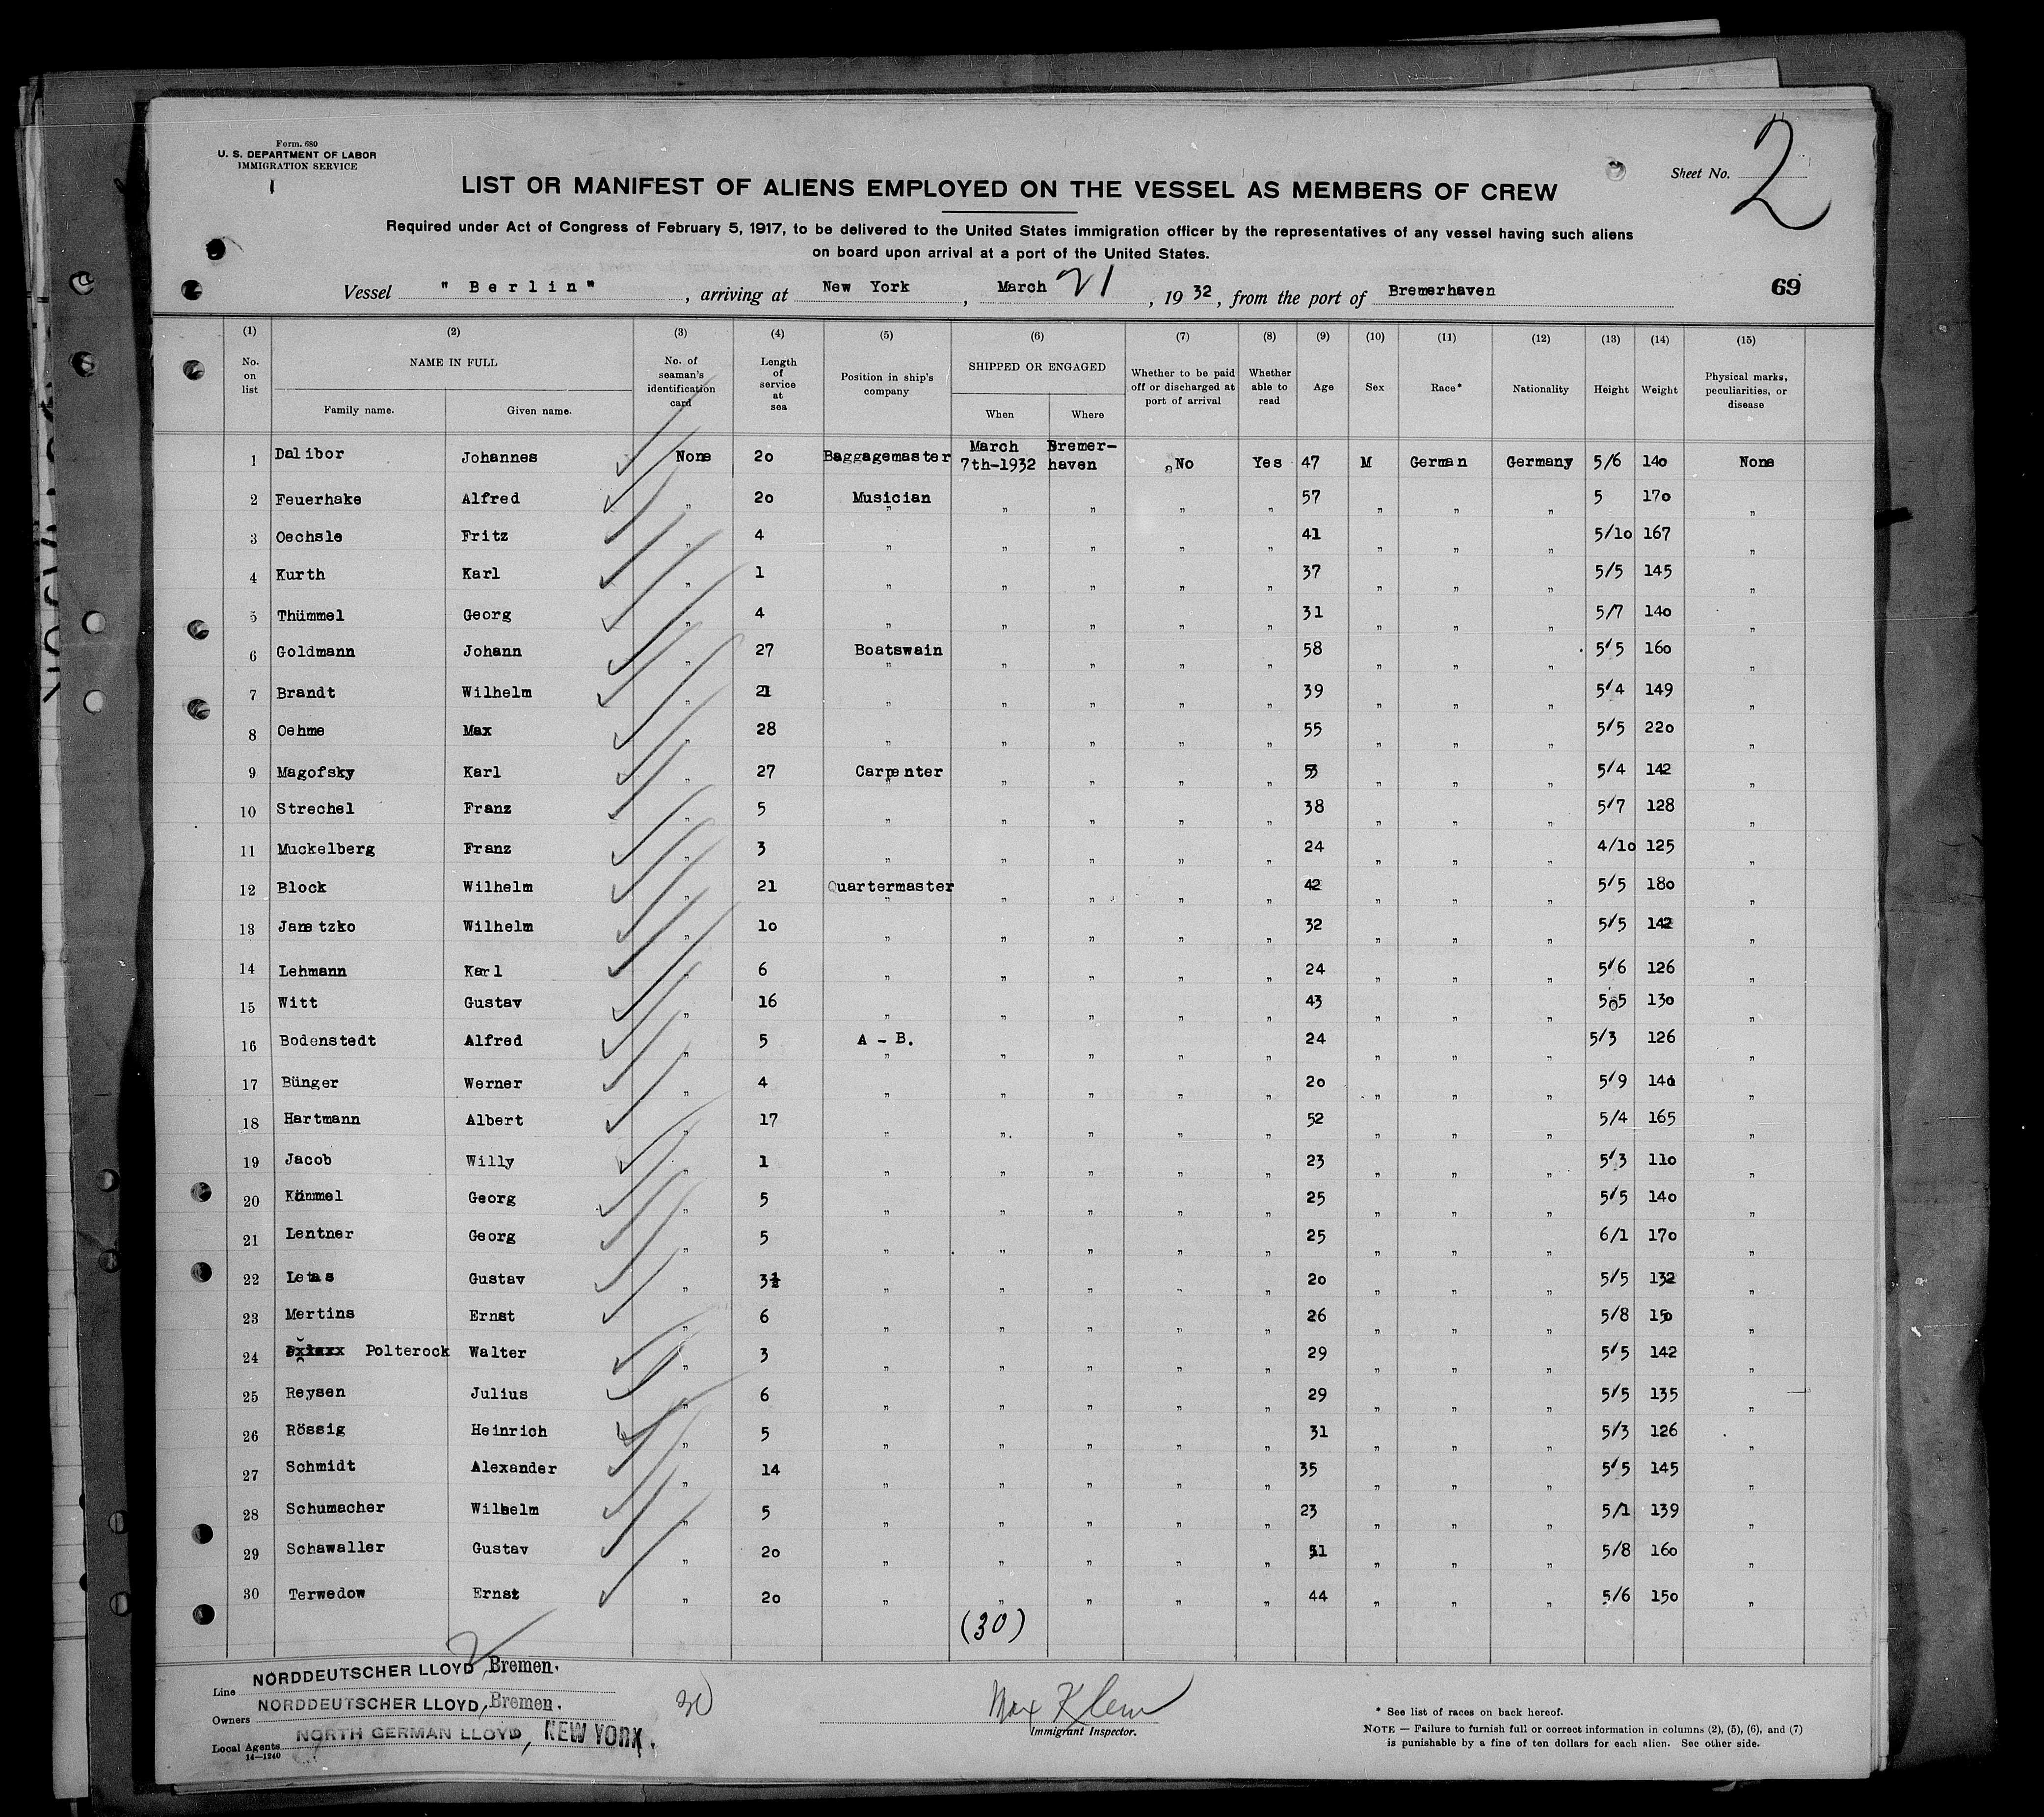 Form. 680
U. S. DEPARTMENT OF LABOR
IMMIGRATION SERVICE
Sheet No. 2
LIST OR MANIFEST OF ALIENS EMPLOYED ON THE VESSEL AS MEMBERS OF CREW
Required under Act of Congress of February 5, 1917, to be delivered to the United States immigration officer by the representatives of any vessel having such aliens
on board upon arrival at a port of the United States.
Vessel "Berlin", arriving at New York, March 21, 1932, from the port of Bremerhaven 69
(1) (2) (3) (4) (5) (6) (7) (8) (9) (10) (11) (12) (13) (14) (15)
No. on list NAME IN FULL Family name. Given name. No. of seaman's identification card Length of service at sea Position in ship's company SHIPPED OR ENGAGED When Where Whether to be paid off or discharged at port of arrival Whether able to read Age Sex Race* Nationality Height Weight Physical marks, peculiarities, or disease
1 Dalibor Johannes None 20 Baggagemaster March 7th-1932 Bremer-haven No Yes 47 M German Germany 5/6 140 None
2 Feuerhake Alfred " 20 Musician " " " " " 57 " " " 5 170 "
3 Oechsle Fritz " 4 " " " " " 41 " " " 5/10 167 "
4 Kurth Karl " 1 " " " " " 37 " " " 5/5 145 "
5 Thümmel Georg " 4 " " " " " 31 " " " 5/7 140 "
6 Goldmann Johann " 27 Boatswain " " " " " 58 " " " 5/5 160 "
7 Brandt Wilhelm " 21 " " " " " 39 " " " 5/4 149 "
8 Oehme Max " 28 " " " " " 55 " " " 5/5 220 "
9 Magofsky Karl " 27 Carpenter " " " " " 53 " " " 5/4 142 "
10 Strechel Franz " 5 " " " " " 38 " " " 5/7 128 "
11 Muckelberg Franz " 3 " " " " " 24 " " " 4/10 125 "
12 Block Wilhelm " 21 Quartermaster " " " " " 42 " " " 5/5 180 "
13 Janetzko Wilhelm " 10 " " " " " 32 " " " 5/5 142 "
14 Lehmann Karl " 6 " " " " " 24 " " " 5/6 126 "
15 Witt Gustav " 16 " " " " " 43 " " " 5/5 130 "
16 Bodenstedt Alfred " 5 A - B. " " " " " 24 " " " 5/3 126 "
17 Bünger Werner " 4 " " " " " 20 " " " 5/9 140 "
18 Hartmann Albert " 17 " " " " " 52 " " " 5/4 165 "
19 Jacob Willy " 1 " " " " " 23 " " " 5/3 110 "
20 Georg " 5 " " " " " 25 " " " 5/5 140 "
21 Lentner Georg " 5 " " " " " 25 " " " 6/1 170 "
22 Gustav " 3½ " " " " " 20 " " " 5/5 132 "
23 Mertins Ernst " 6 " " " " " 26 " " " 5/8 150 "
24 Polterock Walter " 3 " " " " " 29 " " " 5/5 142 "
25 Reysen Julius " 6 " " " " " 29 " " " 5/5 135 "
26 Rössig Heinrich " 5 " " " " " 31 " " " 5/3 126 "
27 Schmidt Alexander " 14 " " " " " 35 " " " 5/5 145 "
28 Schumacher Wilhelm " 5 " " " " " 23 " " " 5/1 139 "
29 Schawaller Gustav " 20 " " " " " 51 " " " 5/8 160 "
30 Terwedow Ernst " 20 " " " " " 44 " " " 5/6 150 "
(30)
Line NORDDEUTSCHER LLOYD, Bremen.
Owners NORDDEUTSCHER LLOYD, Bremen.
Local Agents NORTH GERMAN LLOYD, NEW YORK.
14—1240
30
Max Klein
Immigrant Inspector.
* See list of races on back hereof.
NOTE — Failure to furnish full or correct information in columns (2), (5), (6), and (7)
is punishable by a fine of ten dollars for each alien. See other side.